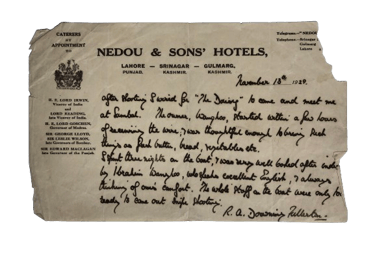 CATERERS
BY
APPOINTMENT
TO
NEDOU & SONS' HOTELS,
LAHORE — SRINAGAR — GULMARG,
PUNJAB. KASHMIR. KASHMIR.
Telegrams—"NEDOU
Telephones—Srinagar
Gulmarg
Lahore
H. E. LORD IRWIN,
Viceroy of India
LORD READING,
late Viceroy of India.
H. E. LORD GOSCHEN,
Governor of Madras
SIR GEORGE LLOYD,
SIR LESLIE WILSON,
late Governors of Bombay.
SIR EDWARD MACLAGAN
late Governor of the Punjab.
November 18th 1929.
After shooting I wired for "The Daisy" to come and meet me
at Sumbal. The owner, Wangloo, started within a few hours
of receiving the wire, & was thoughtful enough to bring such
things as fresh butter, bread, vegetables etc.
I spent three nights on the boat, & was very well looked after
by Ibrahim Wangloo, who speaks excellent English, & always
thinking of one's comfort. The whole staff on the boat were only too
ready to come out
R. A. Downing Fullerton